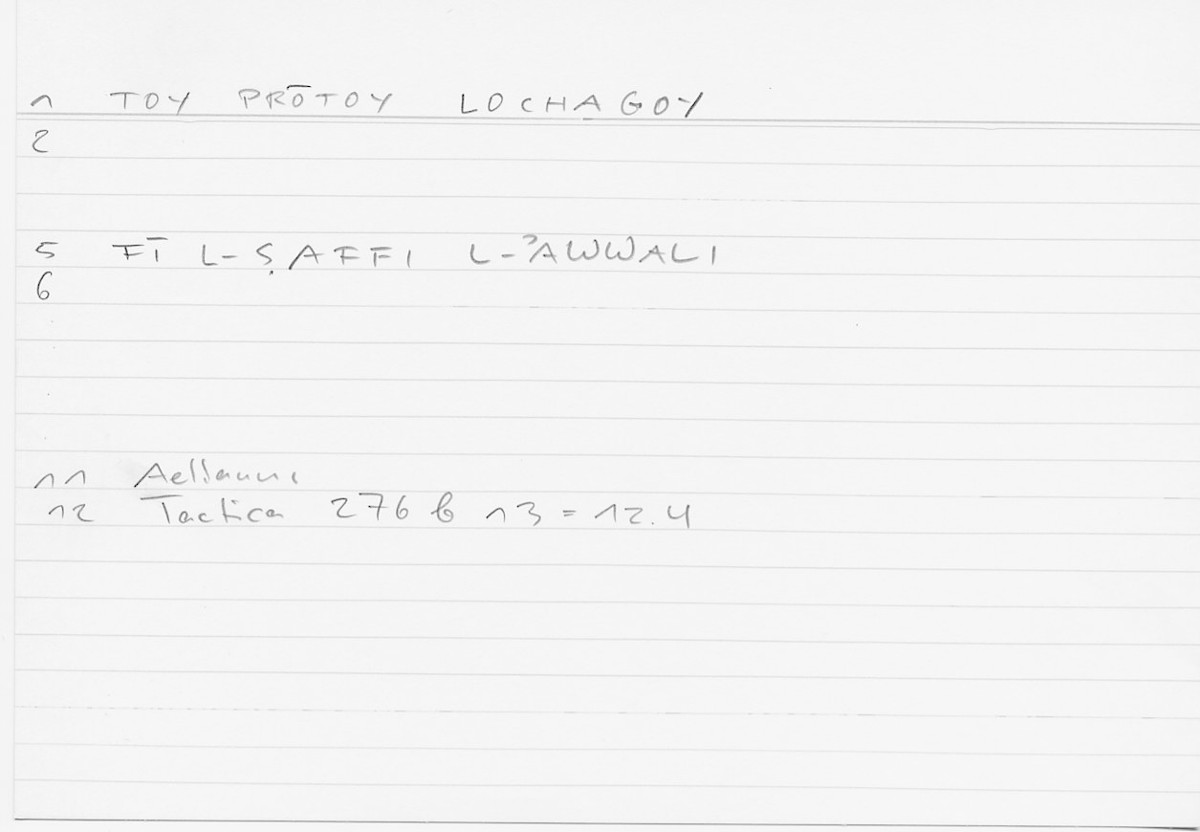 1 TOY PRŌTOY LOCHAGOY
2
5 FĪ L-ṢAFFI L-ʾAWWALI
6
11 Aelianus
12 Tactica 276 b 13 = 12.4